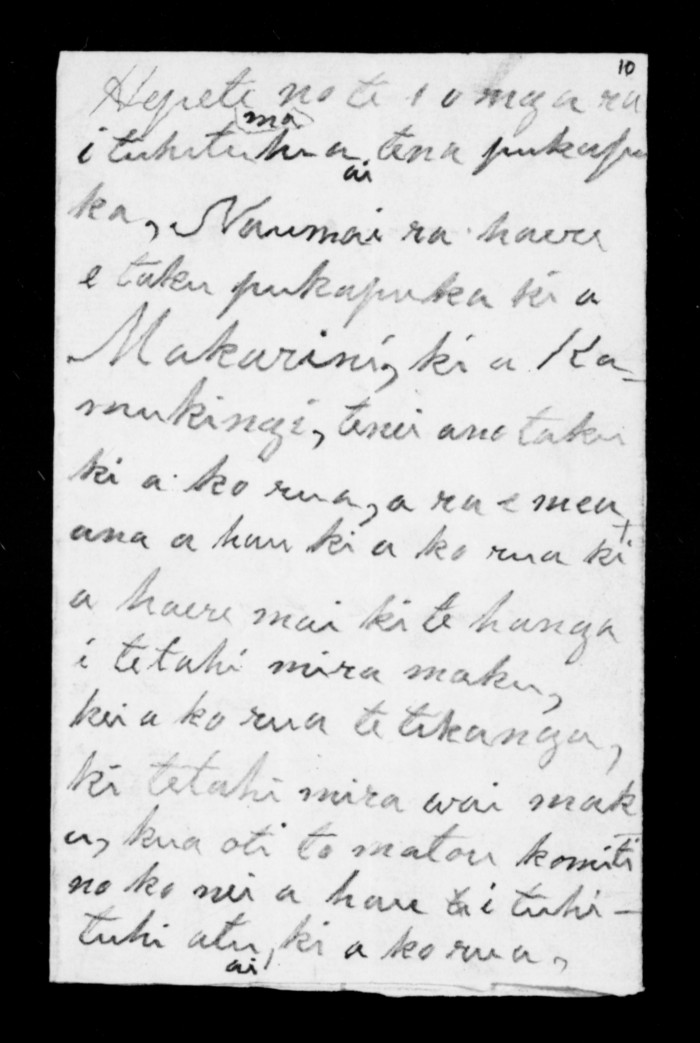 10
Hepete no te 10 o nga ra
ma
i tuhituhia tena pukapu
ai
ka, Naumai ra haere
e taku pukapuka ki a
Makarini, ki a Ka-
mukingi, tenei ano taku
ki a ko rua, a ra e mea
ana a hau ki a ko rua ki
a haere mai ki te hanga
i tetahi mira maku,
kei a ko rua te tikanga,
ki tetahi mira wai mak
u, kua oti to matou komiti
no ko nei a hau i tuhi-
tuhi atu, ki a ko rua,
ai